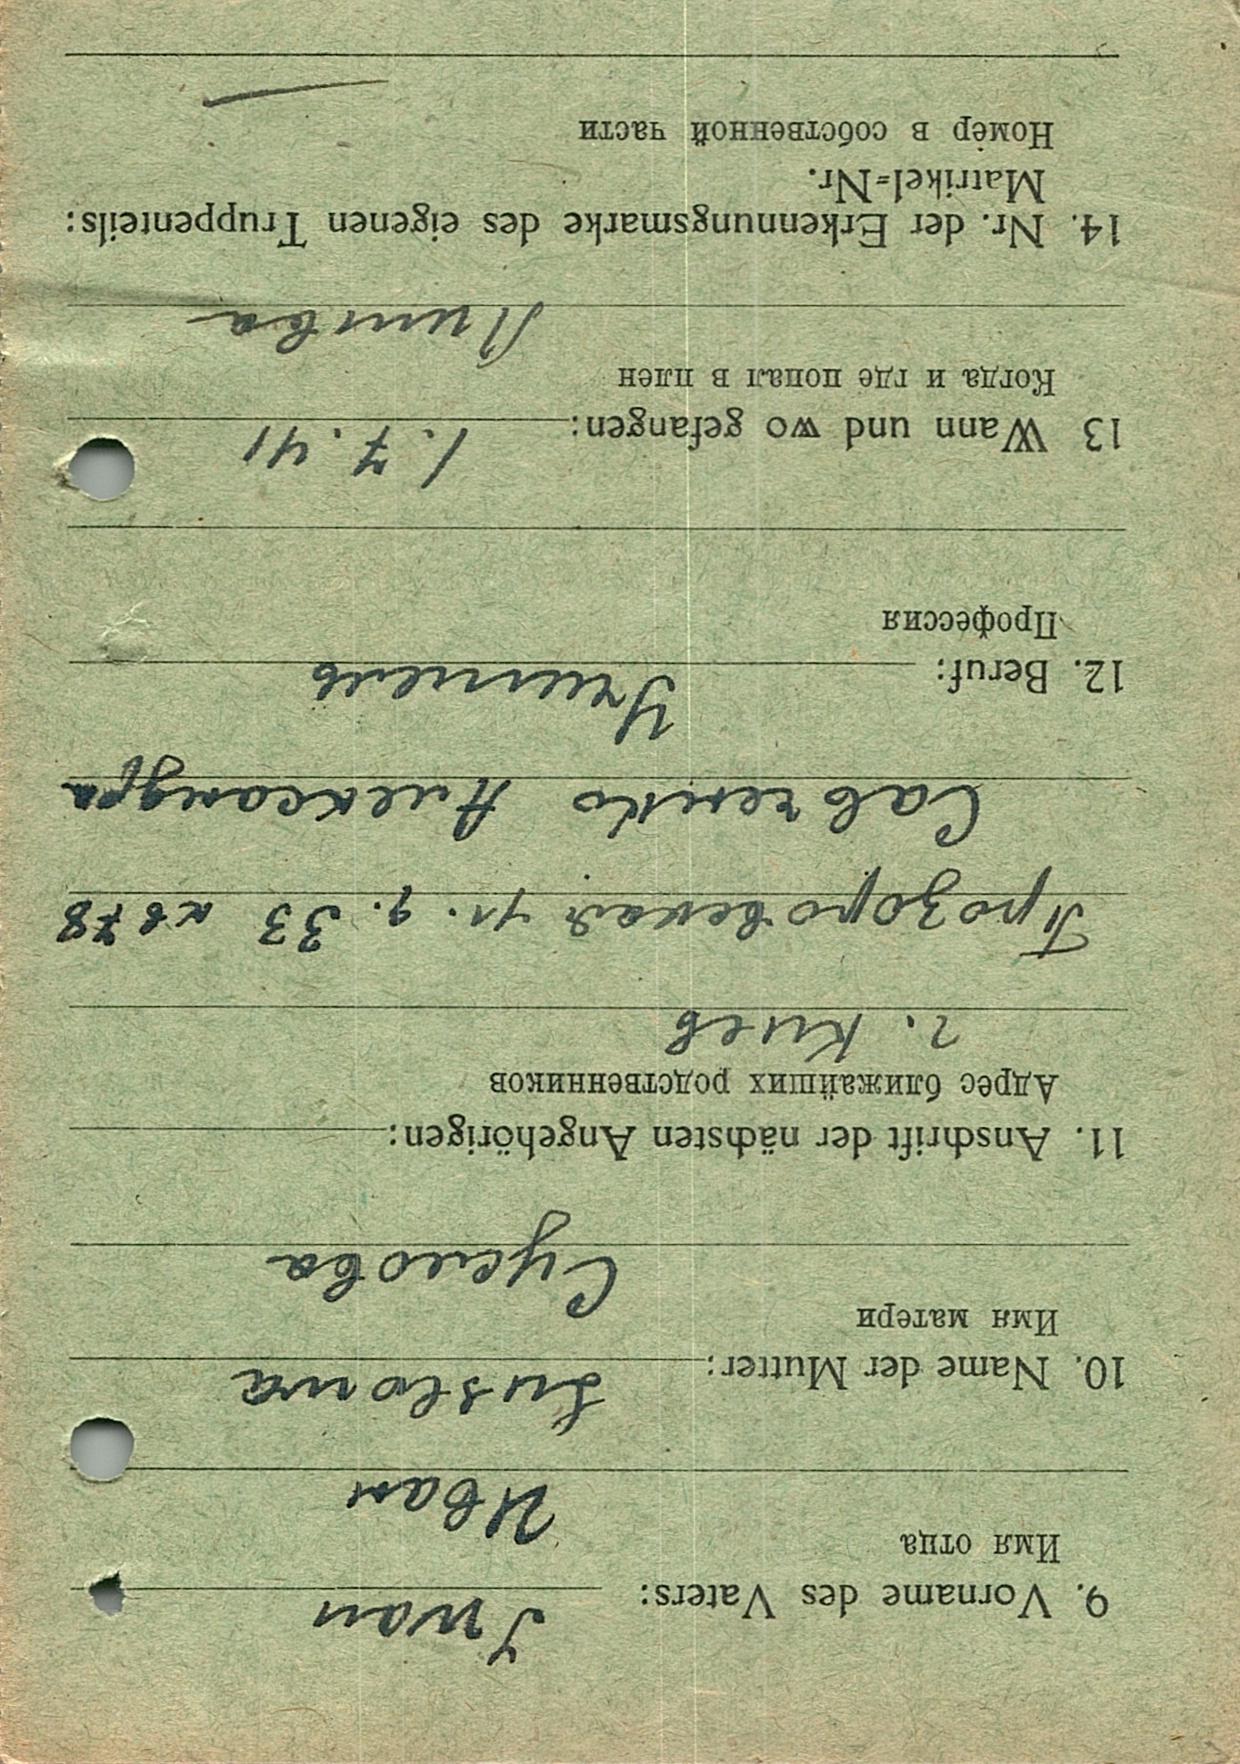 9. Vorname des Vaters: Iwan
Имя отца
Иван
10. Name der Mutter: Suslowa
Имя матери
Суслова
11. Anschrift der nächsten Angehörigen:
Адрес ближайших родственников
г. Киев
Прозоровская ул. д. 33 кв 78
Савченко Александра
12. Beruf: Учитель
Профессия
13 Wann und wo gefangen: 1. 7. 41
Когда и где попал в плен
Литва
14. Nr. der Erkennungsmarke des eigenen Truppenteils:
Matrikel=Nr.
Номер в собственной части